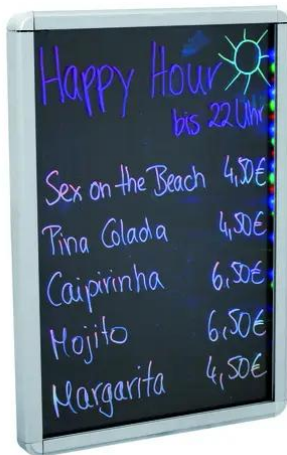 Happy Hour
bis 22 Uhr
Sex on the Beach 4,50€
Pina Colada 4,50€
Caipirinha 6,50€
Mojito 6,50€
Margarita 4,50€